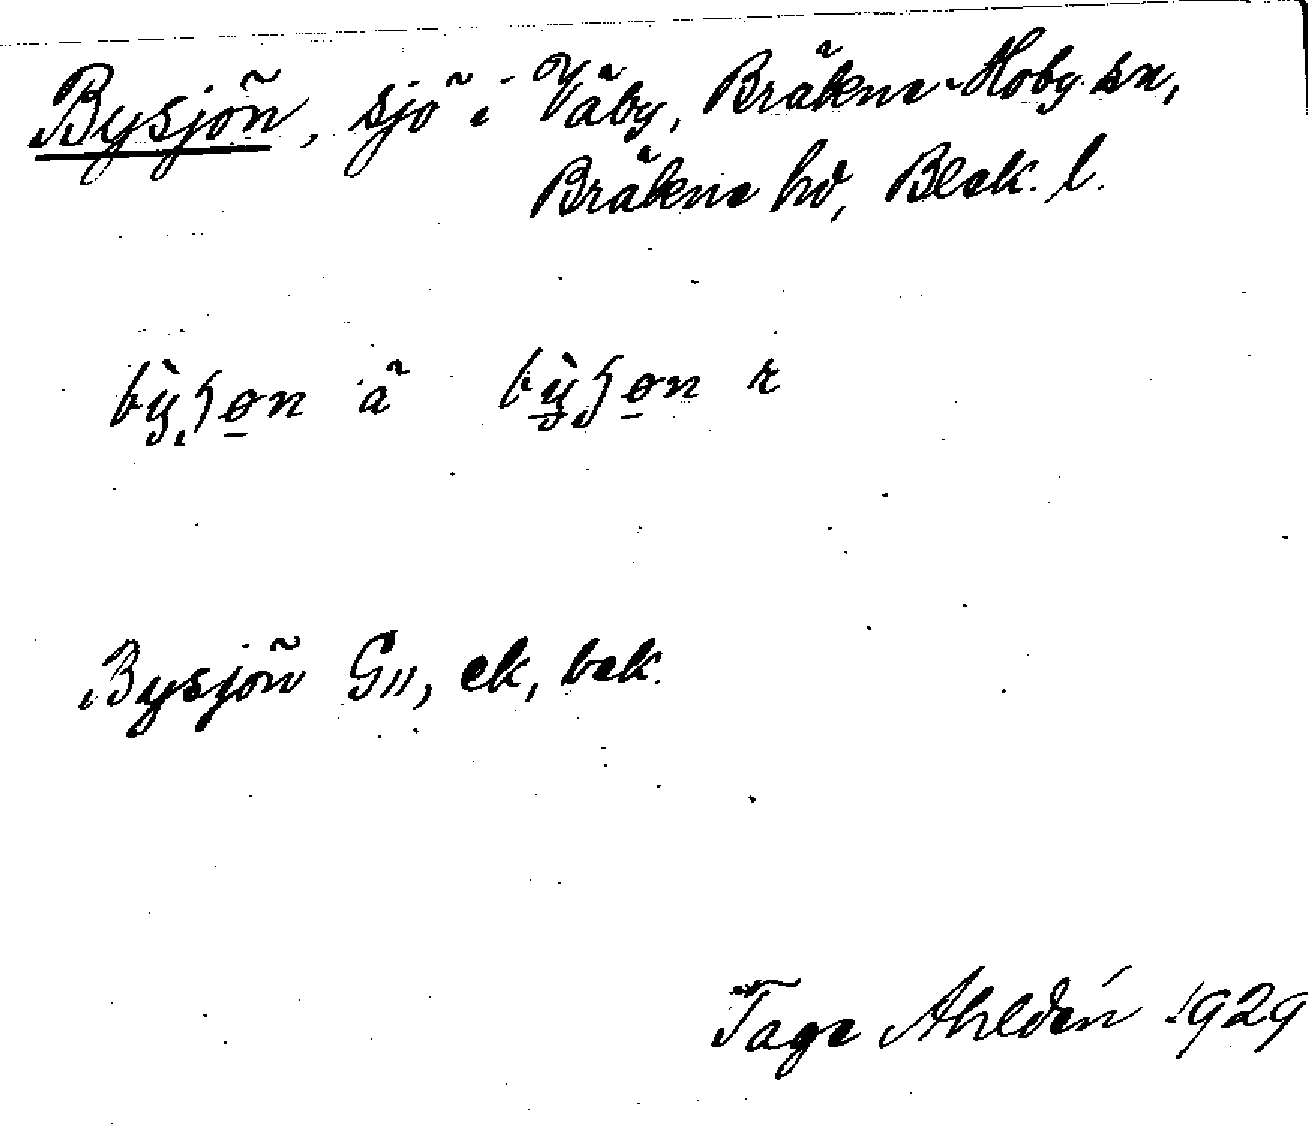 Bysjön, sjö i Väby, Bräkne-Hoby sn,
Bräkne hd, Blek. l.
ä r
Bysjön G11, ek, bek.
Tage Ahldén 1929